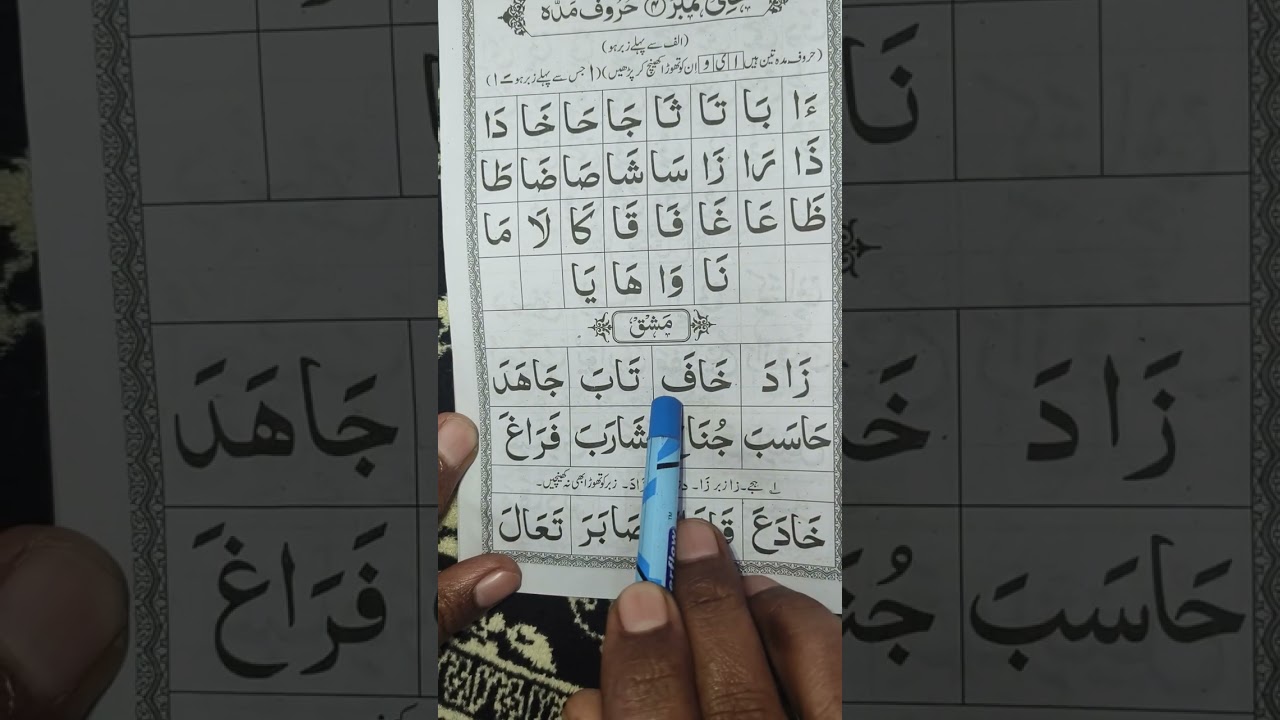 نمبر ۴ حروف مدّہ
(الف سے پہلے زبر ہو)
(حروف مدہ تین ہیں ا ی و ان کو تھوڑا کھینچ کر پڑھیں)(ا جس سے پہلے زبر ہو ـَ ا)
ءَا بَا تَا ثَا جَا حَا خَا دَا
ذَا رَا زَا سَا شَا صَا ضَا طَا
ظَا عَا غَا فَا قَا كَا لَا مَا
نَا وَا هَا يَا
مَشق
زَادَ خَافَ تَابَ جَاهَدَ
حَاسَبَ جُنَا شَارَبَ فَرَاغَ
ہجے۔ زا زبر زَا۔ زَادَ۔ زبر کو تھوڑا بھی نہ کھینچیں۔
خَادَعَ صَابَرَ تَعَالَ
نَا
جَاهَدَ زَادَ
فَرَاغَ حَاسَبَ